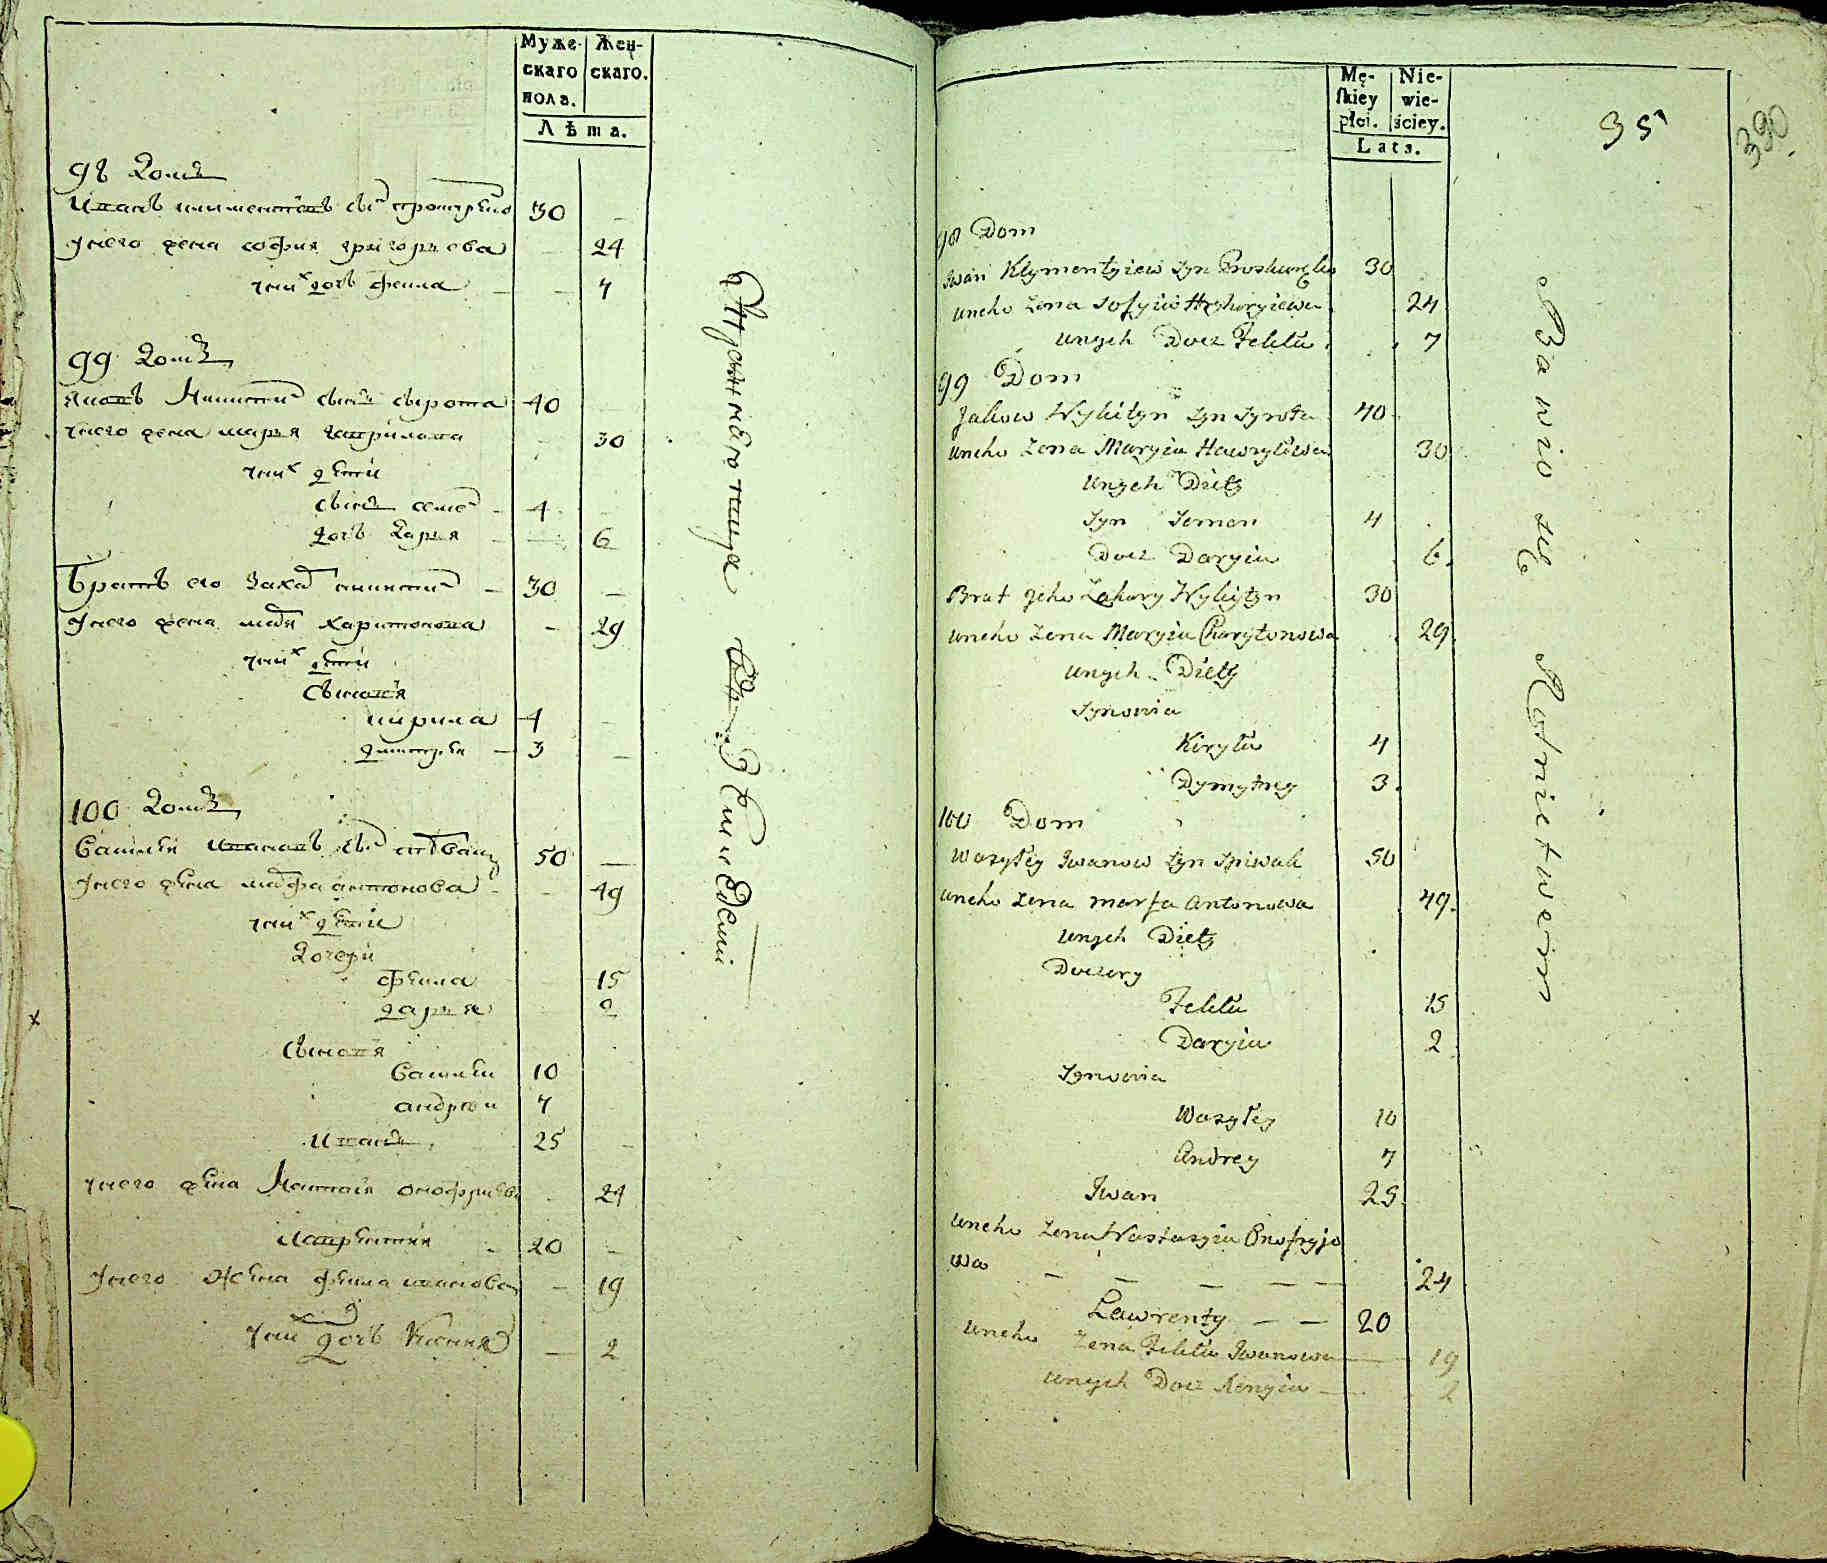 Муже-
скаго
пола.
Жен-
скаго.
Лѣта.
98 Домъ
Иванъ климентіевъ снъ проскуренко 30
унего жена софия григорьева 24
унихъ дочь фекла 7
99 Домъ
яковъ Микитинъ сынъ сырота 40
унего жена марья гаврилова 30
унихъ дети
сынъ семенъ 4
дочь Дарья 6
Братъ его Захаръ никитинъ 30
унего жена марья харитонова 29
унихъ дети
Сыновя
кирила 4
дмитрей 3
100 Домъ
Василей Ивановъ снъ спѣвакъ 50
унего жена марфа антонова 49
унихъ дети
Дочери
фекла 15
дарья 2
Сыновя
Василей 10
андреи 7
Иванъ 25
унего жена Настася онофриева 24
Лаврентия 20
унего Жена фекла иванова 19
унихъ дочь Ксения 2
Mę-
skiey
płci.
Nie-
wie-
ściey.
Lata.
35
390
98 Dom
Iwan Klymentyiew Syn Proskurenko 30
uneho Zena Sofyia Hryhoryiewa 24
unych Docz Fekła 7
99 Dom
Jakow Nykityn Syn Syrota 40
uneho Zena Maryia Hawryłowa 30
unych Diety
Syn Semen 4
Docz Daryia 6
Brat jeho Zahary Nykityn 30
uneho Zena Maryia Charytonowa 29
unych Diety
Synowia
Kiryła 4
Dymytrey 3
100 Dom
Wasyłey Iwanow Syn Spiwak 50
uneho Zena marfa Antonowa 49
unych Diety
Doczery
Fekła 15
Daryia 2
Synowia
Wasyłey 10
Andrey 7
Iwan 25
uneho Zena Nastasyia Onofryjo
wa 24
Ławrenty 20
uneho Zena Fekła Iwanowa 19
unych Docz Xenyia 2
Bawio się Rolnictwem